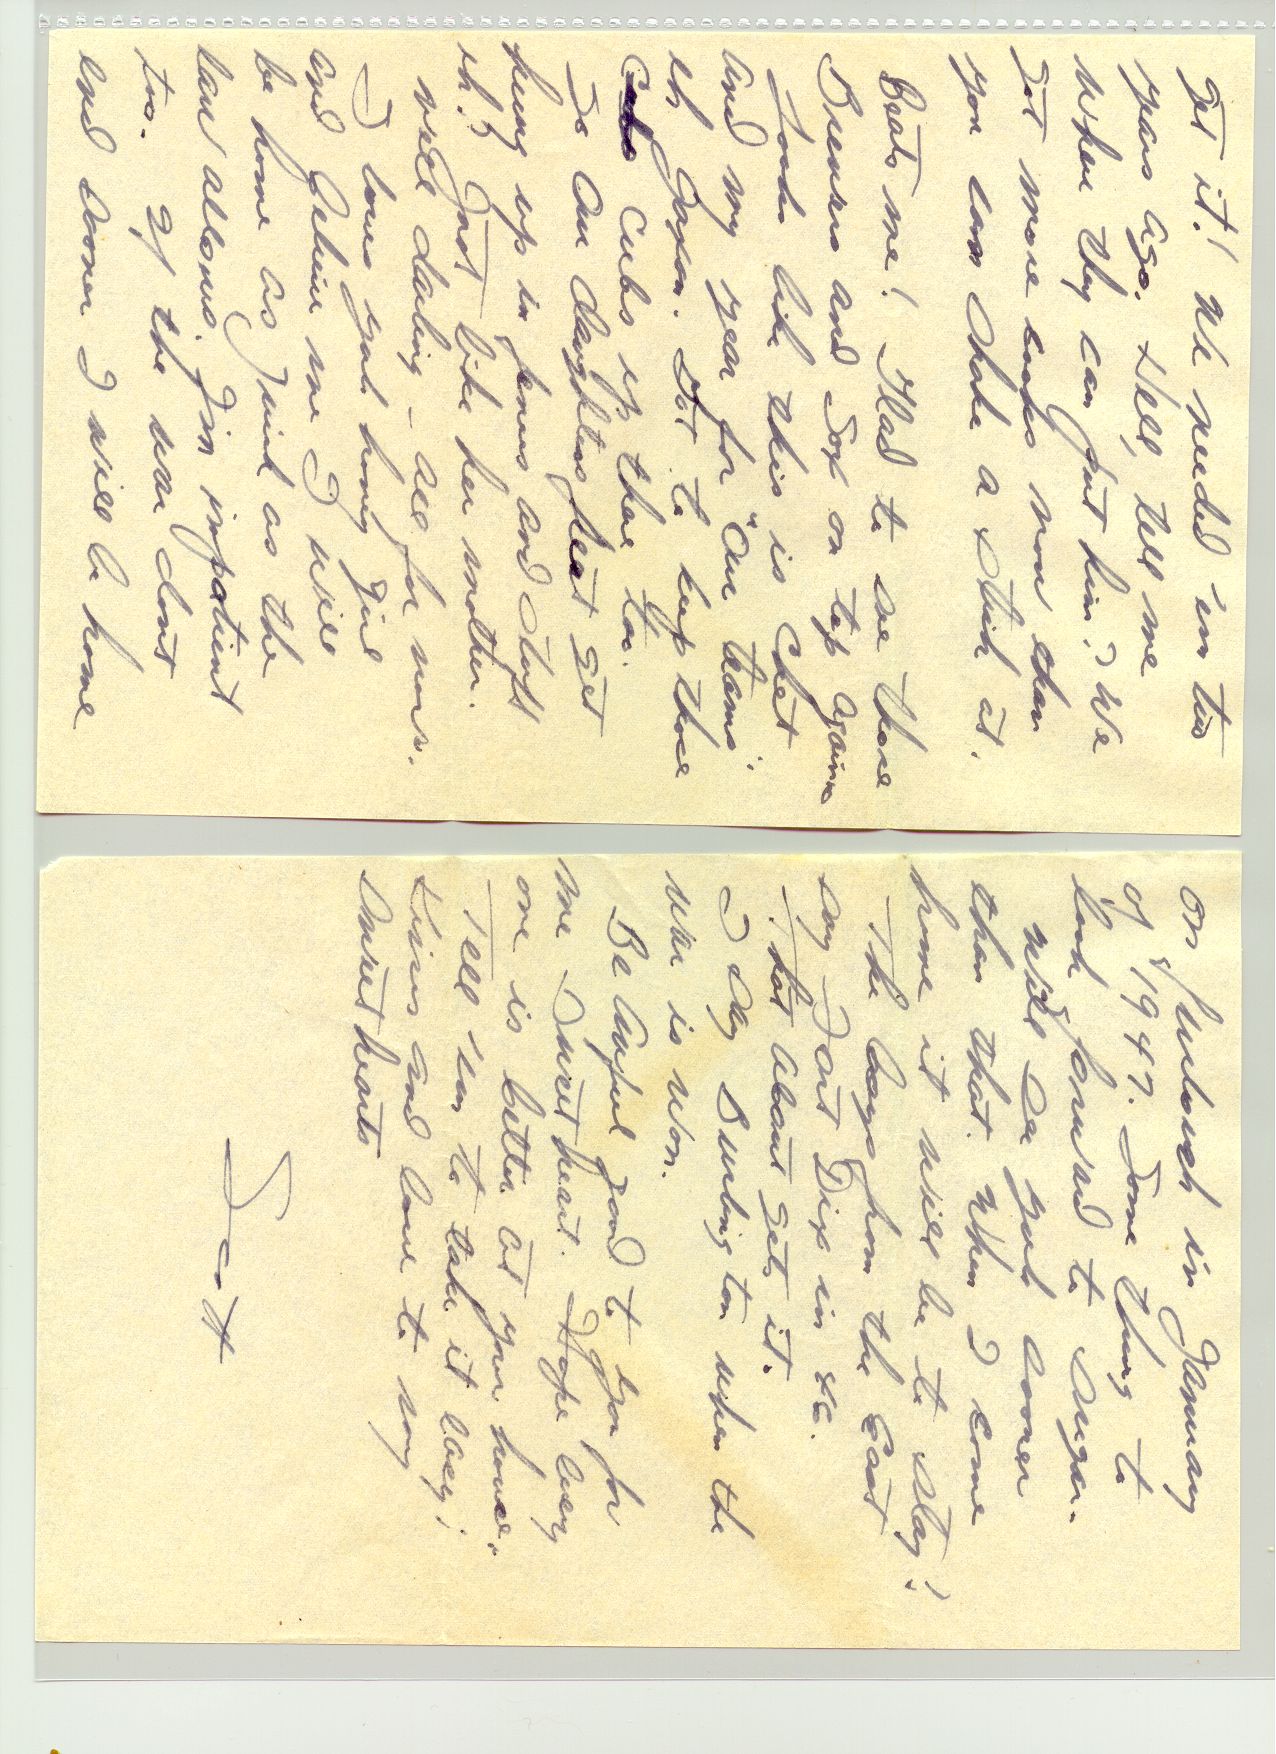 get it! We needed 'em two
years ago. Hell, tell me
where they can put him? We
got more cooks now than
you can shake a stick at.
Beats me! Glad to see those
Brewers and Sox on top again
Looks like this is Chet
and my year for "Our teams".
eh Gaxon. Got to keep those
Cubs up there too.
So our daughters feet get
hung up in furs and stuff
eh? Just like her mother.
Well darling – all for now.
I love you honey girl
and believe me I will
be home as quick as the
law allows. I'm impatient
too. If the war dont
end sooner I will be home
on furlough in January
of 1947. Some thing to
look forward to sugar.
Will see you sooner
than that. When I come
home it will be to stay!
The boys from the East
say Fort Dix in '48.
That about gets it.
I say Burlington when the
war is won.
Be awful good to you for
me Sweetheart. Hope every
one is better at your house.
Tell 'em to take it easy;
Kisses and love to my
Sweethearts
Scott